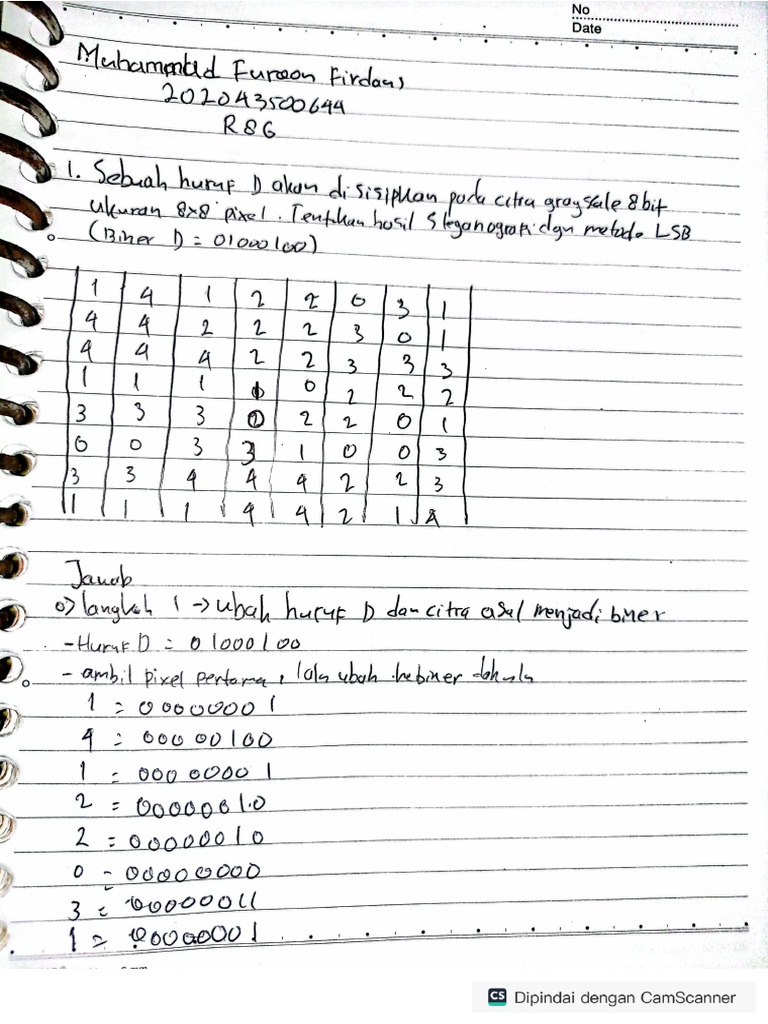 No
Date
Muhammad Furqon Firdaus
202043500644
R8G
1. Sebuah huruf D akan disisipkan pada citra grayscale 8bit
ukuran 8x8 pixel. Tentukan hasil Steganografi dgn metode LSB
(Biner D = 01000100)
1 4 1 2 2 0 3 1
4 4 2 2 2 3 0 1
4 4 4 2 2 3 3 3
1 1 1 0 2 2 2
3 3 3 0 2 2 0 1
0 0 3 3 1 0 0 3
3 3 4 4 4 2 2 3
1 1 1 4 4 2 1 4
Jawab
o> langkah 1 -> ubah huruf D dan citra asal menjadi biner
- Huruf D = 01000100
- ambil pixel pertama, lalu ubah kebiner dahulu
1 = 00000001
4 = 00000100
1 = 00000001
2 = 00000010
2 = 00000010
0 = 00000000
3 = 00000011
1 = 00000001
CS Dipindai dengan CamScanner